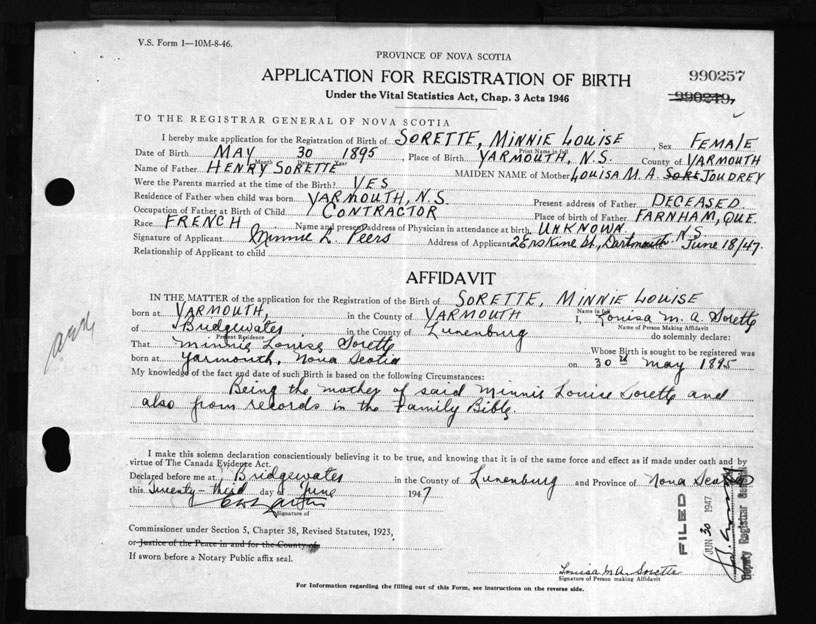 V.S. Form 1—10M-8-46.
PROVINCE OF NOVA SCOTIA
APPLICATION FOR REGISTRATION OF BIRTH
990257
Under the Vital Statistics Act, Chap. 3 Acts 1946
990249
TO THE REGISTRAR GENERAL OF NOVA SCOTIA
I hereby make application for the Registration of Birth of SORETTE, MINNIE LOUISE, Sex FEMALE
Print Name in full
Date of Birth MAY 30 1895, Place of Birth YARMOUTH, N.S. County of YARMOUTH
Month Date Year
Name of Father HENRY SORETTE MAIDEN NAME of Mother LOUISA M. A. SORE JOUDREY
Were the Parents married at the time of the Birth? YES
Residence of Father when child was born YARMOUTH, N.S. Present address of Father DECEASED
Occupation of Father at Birth of Child CONTRACTOR Place of birth of Father FARNHAM, QUE.
Race FRENCH Name and present address of Physician in attendance at birth UNKNOWN
Signature of Applicant Minnie L. Peers Address of Applicant 2 Erskine St., Dartmouth N.S. June 18/47
Relationship of Applicant to child
AFFIDAVIT
IN THE MATTER of the application for the Registration of the Birth of SORETTE, MINNIE LOUISE
Name in full
born at YARMOUTH, in the County of YARMOUTH I, Louisa M. A. Sorette
Name of Person Making Affidavit
of Bridgewater in the County of Lunenburg do solemnly declare:
Present Residence
That Minnie Louise Sorette Whose Birth is sought to be registered was
born at Yarmouth, Nova Scotia on 30th May 1895
My knowledge of the fact and date of such Birth is based on the following Circumstances:
Being the mother of said Minnie Louise Sorette and
also from records in the Family Bible
I make this solemn declaration conscientiously believing it to be true, and knowing that it is of the same force and effect as if made under oath and by
virtue of The Canada Evidence Act.
Declared before me at Bridgewater in the County of Lunenburg and Province of Nova Scotia
this Twenty-third day of June 1947
Signature of
Commissioner under Section 5, Chapter 38, Revised Statutes, 1923,
or Justice of the Peace in and for the County of
If sworn before a Notary Public affix seal.
FILED
JUN 30 1947
Deputy Registrar General
Louisa M A Sorette
Signature of Person making Affidavit
For Information regarding the filling out of this Form, see instructions on the reverse side.